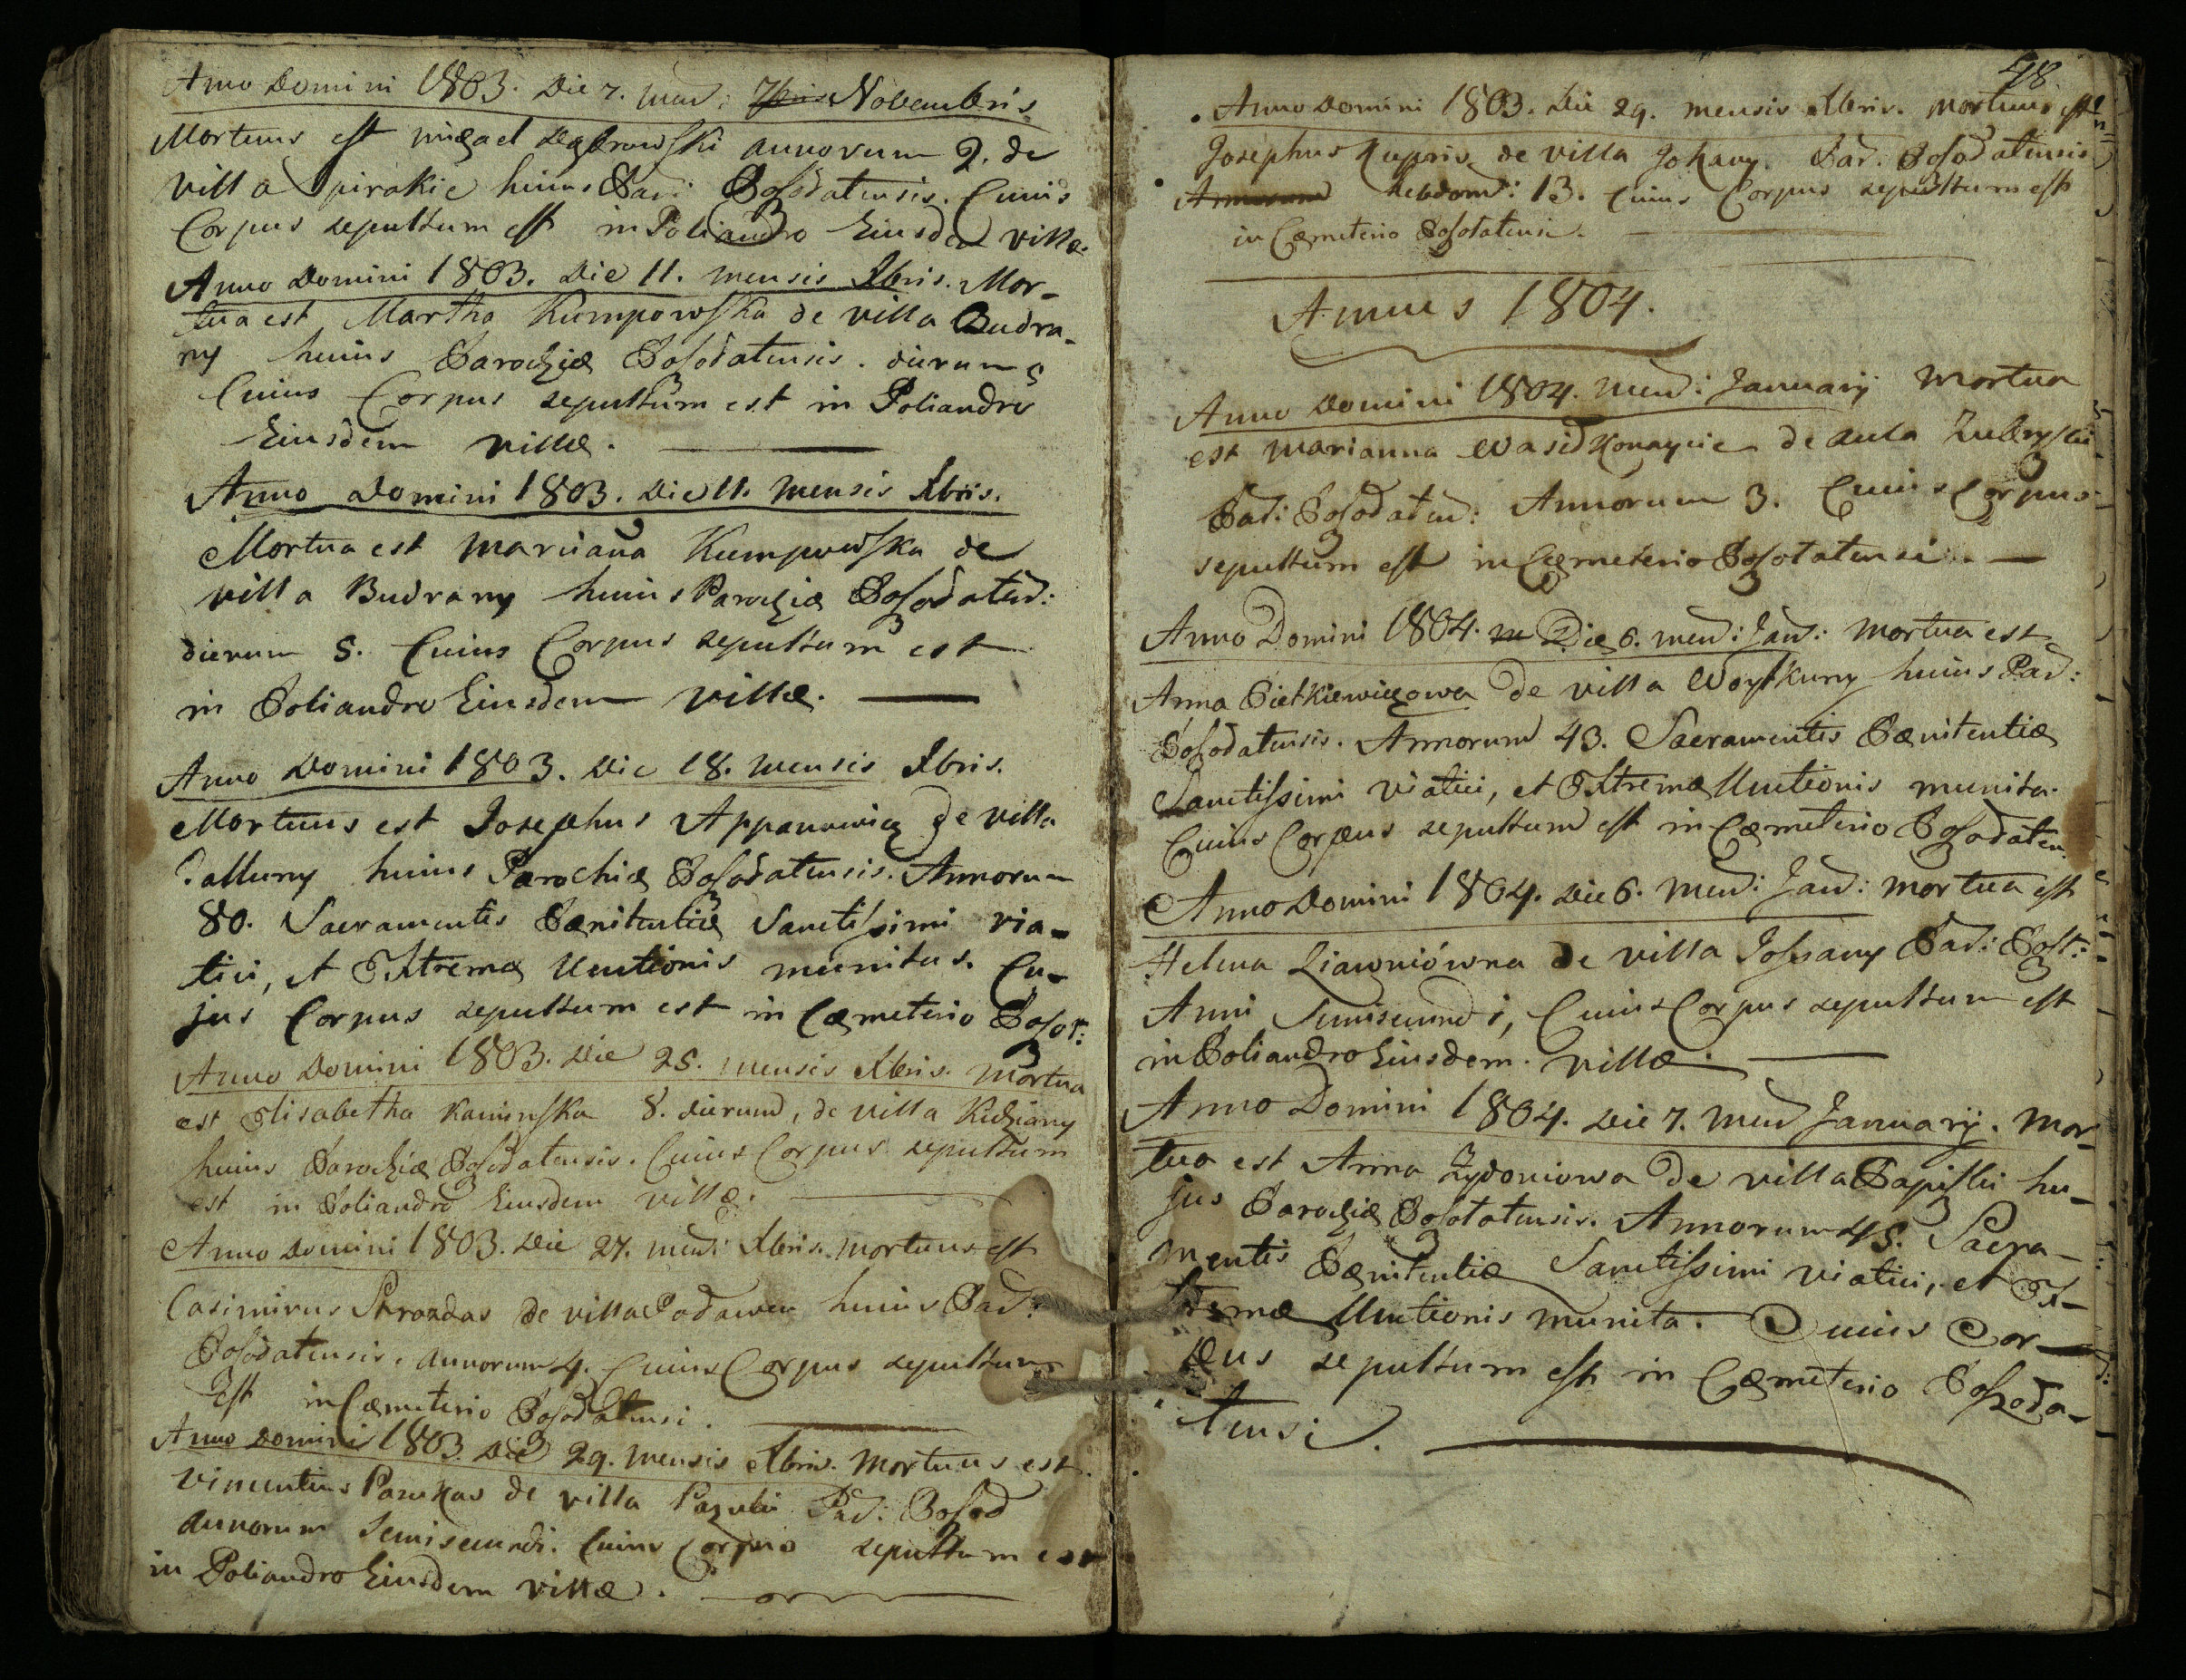 Anno Domini 1803. Die 7. mens: 7bris Novembris.
Mortuus est Michael Dąbrowski annorum 2. de
villa Spirakie huius Par: Poſodatensis. Cuius
Corpus sepultum est in Poliandro Eiusdem villæ.
Anno Domini 1803. Die 11. mensis Xbris. Mor-
tua est Martha Kumpowſka de villa Budra-
ny huius Parochiæ Poſodatensis. dierum 5
Cuius Corpus sepultum est in Poliandro
Eiusdem villæ.
Anno Domini 1803. Die 11. mensis Xbris.
Mortua est Mariana Kumpowſka de
villa Budrany huius Parochiæ Poſodaten:
dierum 5. Cuius Corpus sepultum est
in Poliandro Eiusdem villæ.
Anno Domini 1803. Die 18. mensis Xbris.
Mortuus est Josephus Appanowicz de villa
Talluny huius Parochiæ Poſodatensis. Annorum
80. Sacramentis Pænitentiæ Sanctiſsimi via-
tici, et Extremæ Unctionis munitus. Cu-
jus Corpus sepultum est in Cæmeterio Poſot:
Anno Domini 1803. Die 25. mensis Xbris. Mortua
est Elisabetha Kaminſka 8. dierum, de villa Kidziany
huius Parochiæ Poſodatensis. Cuius Corpus sepultum
est in Poliandro Eiusdem villæ.
Anno Domini 1803. Die 27. mens: Xbris. mortuus est
Casimirus Skrozdas de villa Podawin huius Par:
Poſodatensis. annorum 4. Cuius Corpus sepultum
Est in Cæmeterio Poſodatensi.
Anno Domini 1803. Die 29. mensis Xbris. Mortuus est.
Vincentius Parukas de villa Pazulis Par: Poſod
annorum Semisecundi. Cuius Corpus sepultum est
in Poliandro Eiusdem villæ.
48.
Anno Domini 1803. Die 29. mensis Xbris. Mortuus est
Josephus Kupris de villa Jokany. Par: Poſodatensis
Annorum hebdom: 13. Cuius Corpus sepultum est
in Cæmeterio Poſotatensi.
Annus 1804.
Anno Domini 1804. mens: Januarij Mortua
est Marianna Wasidkonaycie de aula Zubryſzki
Par: Poſodaten: Annorum 3. Cuius Corpus
sepultum est in Cæmeterio Poſotatensi.
Anno Domini 1804. m Die 6. mens: Jan: mortua est
Anna Pietkiewiczowa de villa Woytkuny huius Par:
Poſodatensis. Annorum 43. Sacramentis Pænitentiæ
Sanctiſsimi viatici, et Extremæ Unctionis munita.
Cuius Corpus sepultum est in Cæmeterio Poſodaten
Anno Domini 1804. Die 6. mens: Jan: mortua est
Helena Liawniówna de villa Joſsany Par: Poſt:
Anni Semisecundi, Cuius Corpus sepultum est
in Poliandro Eiusdem villæ.
Anno Domini 1804. Die 7. mens Januarij. Mor-
tua est Anna Zydoniowa de villa Papiſzki hu-
jus Parochiæ Poſotatensis. Annorum 45. Sacra-
mentis Pænitentiæ Sanctiſsimi viatici, et Ex-
tremæ Unctionis munita. Cuius Cor-
pus sepultum est in Cæmeterio Poſzoda-
tensi.